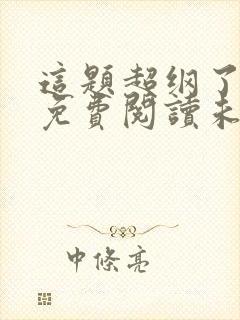 這題超纲了
免費閱讀未
中條亮